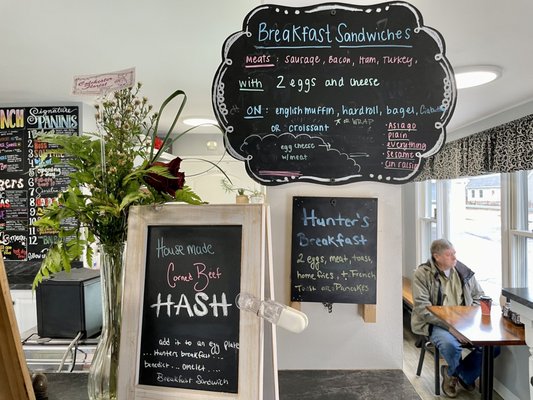 Breakfast Sandwiches
Meats: Sausage, Bacon, Ham, Turkey,
with 2 eggs and cheese
ON: english muffin, hardroll, bagel,
or croissant * or WRAP
egg cheese
w/meat
Asiago
plain
everything
sesame
cin raisin
Signature
Spannis
Hunter's
Breakfast
2 eggs, meat, toast,
home fries, + French
Toast or Pancakes
House made
Corned Beef
HASH
add it to an egg plate
... Hunters breakfast...
benedict ... omelet ...
Breakfast Sandwich